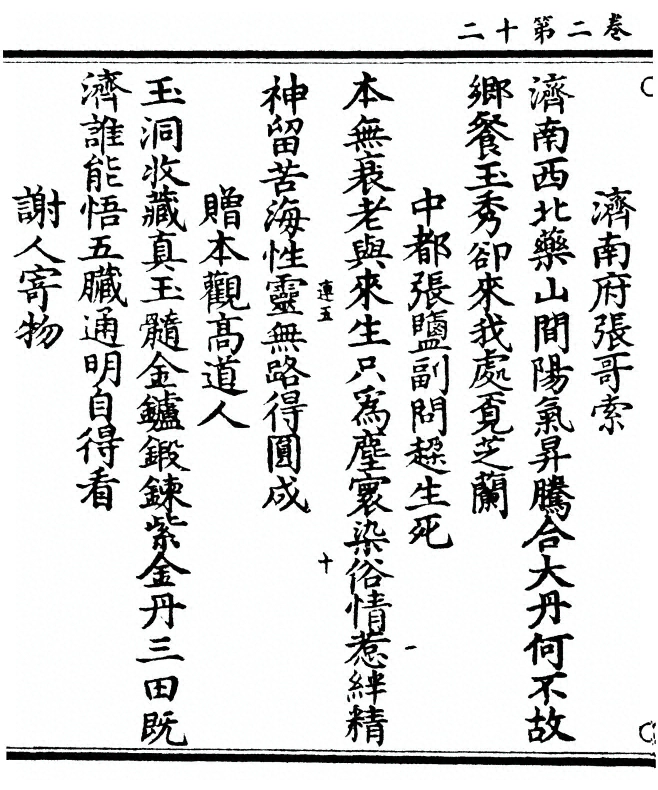 二十第二卷
濟南府張哥索
濟南西北藥山間陽氣昇騰合大丹何不故
鄉餐玉秀卻來我處覓芝蘭
中都張鹽副問趯生死
本無衰老與來生只爲塵寰染俗情惹絆精
神留苦海性靈無路得圓成
連五
十
一
贈本觀高道人
玉洞收藏真玉髓金鑪鍛鍊紫金丹三田既
濟誰能悟五臟通明自得看
謝人寄物